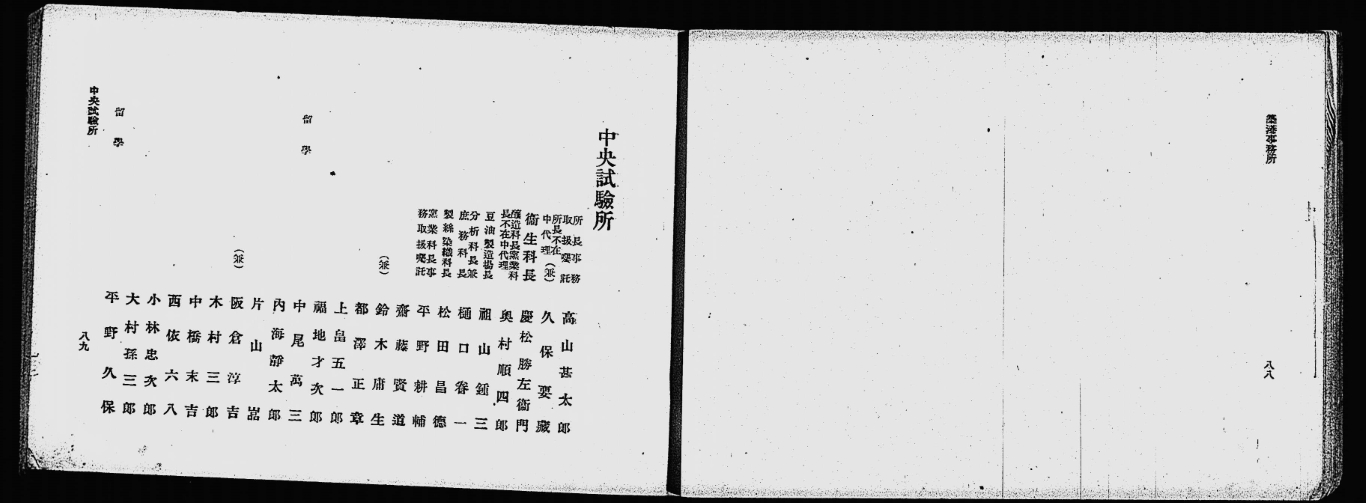 築港事務所
八八
中央試驗所
所長事務取扱囑託 高山甚太郎
所長不在中代理(兼) 久保要藏
衞生科長 慶松勝左衞門
釀造科長窯業科長不在中代理 奥村順四郎
豆油製造場長 祖山鍾三
分析科長兼庶務科長 樋口春一
製絲染織科長 松田昌德
窯業科長事務取扱囑託 平野耕輔
齋藤賢道
(兼) 鈴木庸生
都澤正章
上畠五一郎
福地才次郎
留學 中尾萬三
内海靜太郎
片山嵓
(兼) 阪倉淳吉
木村三郎
中橋末吉
西依六八
小林忠次郎
大村孫三郎
留學 平野久保
中央試驗所
八九